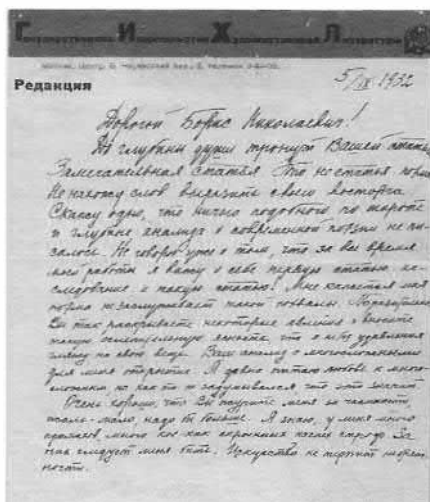 Государственное Издательство Художественной Литературы
Редакция
5/IX 1932
Дорогой Борис Николаевич!
До глубины души тронут Вашей статьей
Замечательная статья. Это не статья
Не нахожу слов выразить своего восторга.
Скажу одно, что ничего подобного по широте
и глубине анализа о современной поэзии не пи-
салось. Не говорю уже о том, что за все время
моей работы я вижу о себе первую статью, ис-
следование и какую статью! Мне кажется моя
не заслуживает такой похвалы.
Вы так раскрываете некоторые явления и вносите
такую ясность, что я с удивлением
гляжу на свои вещи. Ваш анализ о многосложными
для меня открытие. Я давно питаю любовь к много-
сложным но как то не задумывался что это значит
Очень хорошо, что Вы журите меня за
только мало, надо бы больше. Я знаю, у меня много
промахов, много кое как строф. За
них следует меня бить. Искусство не терпит небреж-
ности.